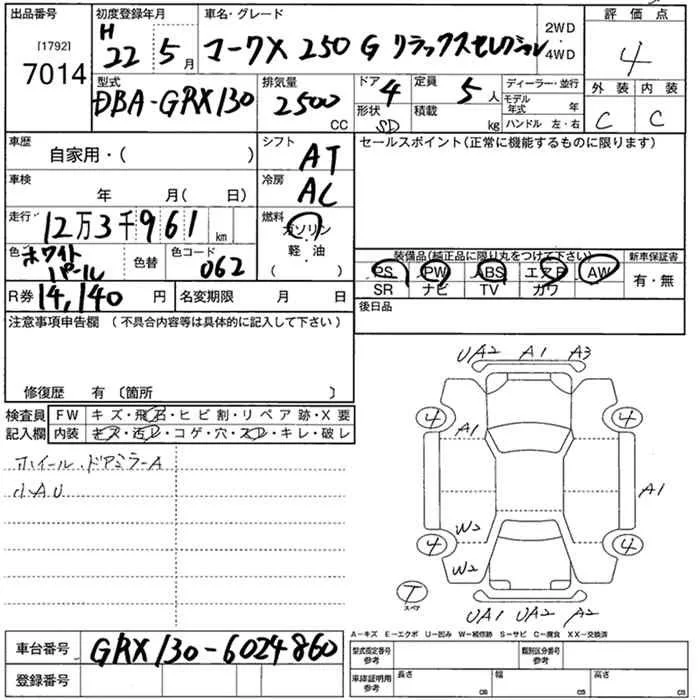 出品番号 初度登録年月 車名・グレード 評価点
[1792]
7014
H 22 5月 マークX 250 G リラックスセレクション 2WD・4WD 4
型式 排気量 ドア 4 定員 5人 ディーラー・並行 外装 内装
DBA-GRX130 2500 CC 形状 SD 積載 kg モデル年式 年 C C
ハンドル 左・右
車歴 自家用・( ) シフト AT セールスポイント(正常に機能するものに限ります)
車検 年 月( 日) 冷房 AC
走行 12万3千961km 燃料 ガソリン・軽・油 ( )
色 ホワイトパール 色替 色コード 062 装備品(純正品に限り丸をつけて下さい) 新車保証書
PS PW ABS エアB AW 有・無
SR ナビ TV カワ
R券 14,140 円 名変期限 月 日 後日品
注意事項申告欄 (不具合内容等は具体的に記入して下さい)
修復歴 有 〔箇所 〕
検査員 FW キズ・飛石・ヒビ割・リペア跡・X要
記入欄 内装 キズ・汚レ・コゲ・穴・スレ・キレ・破レ
ホイール.ドアミラーA
小AU
UA2 A1 A3
4 4
A1
A1
W2
4 4
W2
T
スペア
UA1 UA2 A2
A-キズ E-エクボ U-凹み W-補修跡 S-サビ C-腐食 XX-交換済
車台番号 GRX130-6024860 型式指定番号 参考 類別区分番号 参考
登録番号 車庫証明用 参考 長さ cm 幅 cm 高さ cm